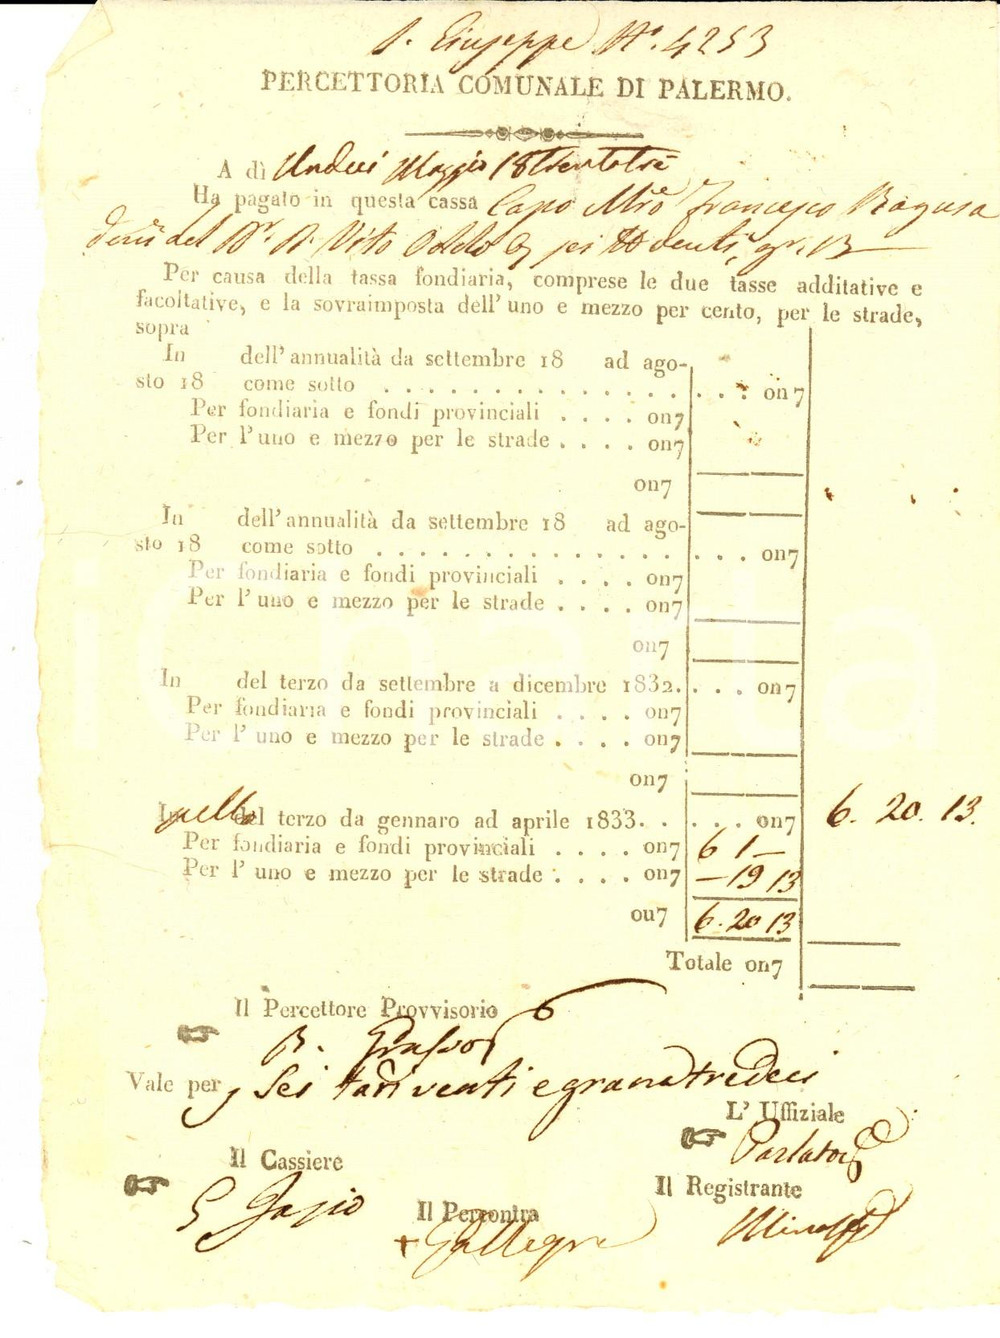 S. Giuseppe N.º 4253
PERCETTORIA COMUNALE DI PALERMO.
A dì Undeci Maggio 18trentatrè
Ha pagato in questa cassa Capo Mro Francesco Ragusa
del Dr. D. Vito sei tt venti, gr. 13
Per causa della tassa fondiaria, comprese le due tasse additative e
facoltative, e la sovraimposta dell' uno e mezzo per cento, per le strade,
sopra
In dell' annualità da settembre 18 ad ago-
sto 18 come sotto . . . . . . . . . . . . . . . . on7
Per fondiaria e fondi provinciali . . . . on7
Per l' uno e mezzo per le strade . . . . on7
on7
In dell' annualità da settembre 18 ad ago-
sto 18 come sotto . . . . . . . . . . . . . . . . on7
Per fondiaria e fondi provinciali . . . . on7
Per l' uno e mezzo per le strade . . . . on7
on7
In del terzo da settembre a dicembre 1832. . . . on7
Per fondiaria e fondi provinciali . . . . on7
Per l' uno e mezzo per le strade . . . . on7
on7
In del terzo da gennaro ad aprile 1833. . . . . on7 6. 20. 13.
Per fondiaria e fondi provinciali . . . . on7 6 1 —
Per l' uno e mezzo per le strade . . . . on7 — 19 13
on7 6. 20 13
Totale on7
Il Percettore Provvisorio
Vale per Sei tarì venti e grana tredeci
L' Uffiziale
Parlatore
Il Cassiere
Il Registrante
Il Percontra